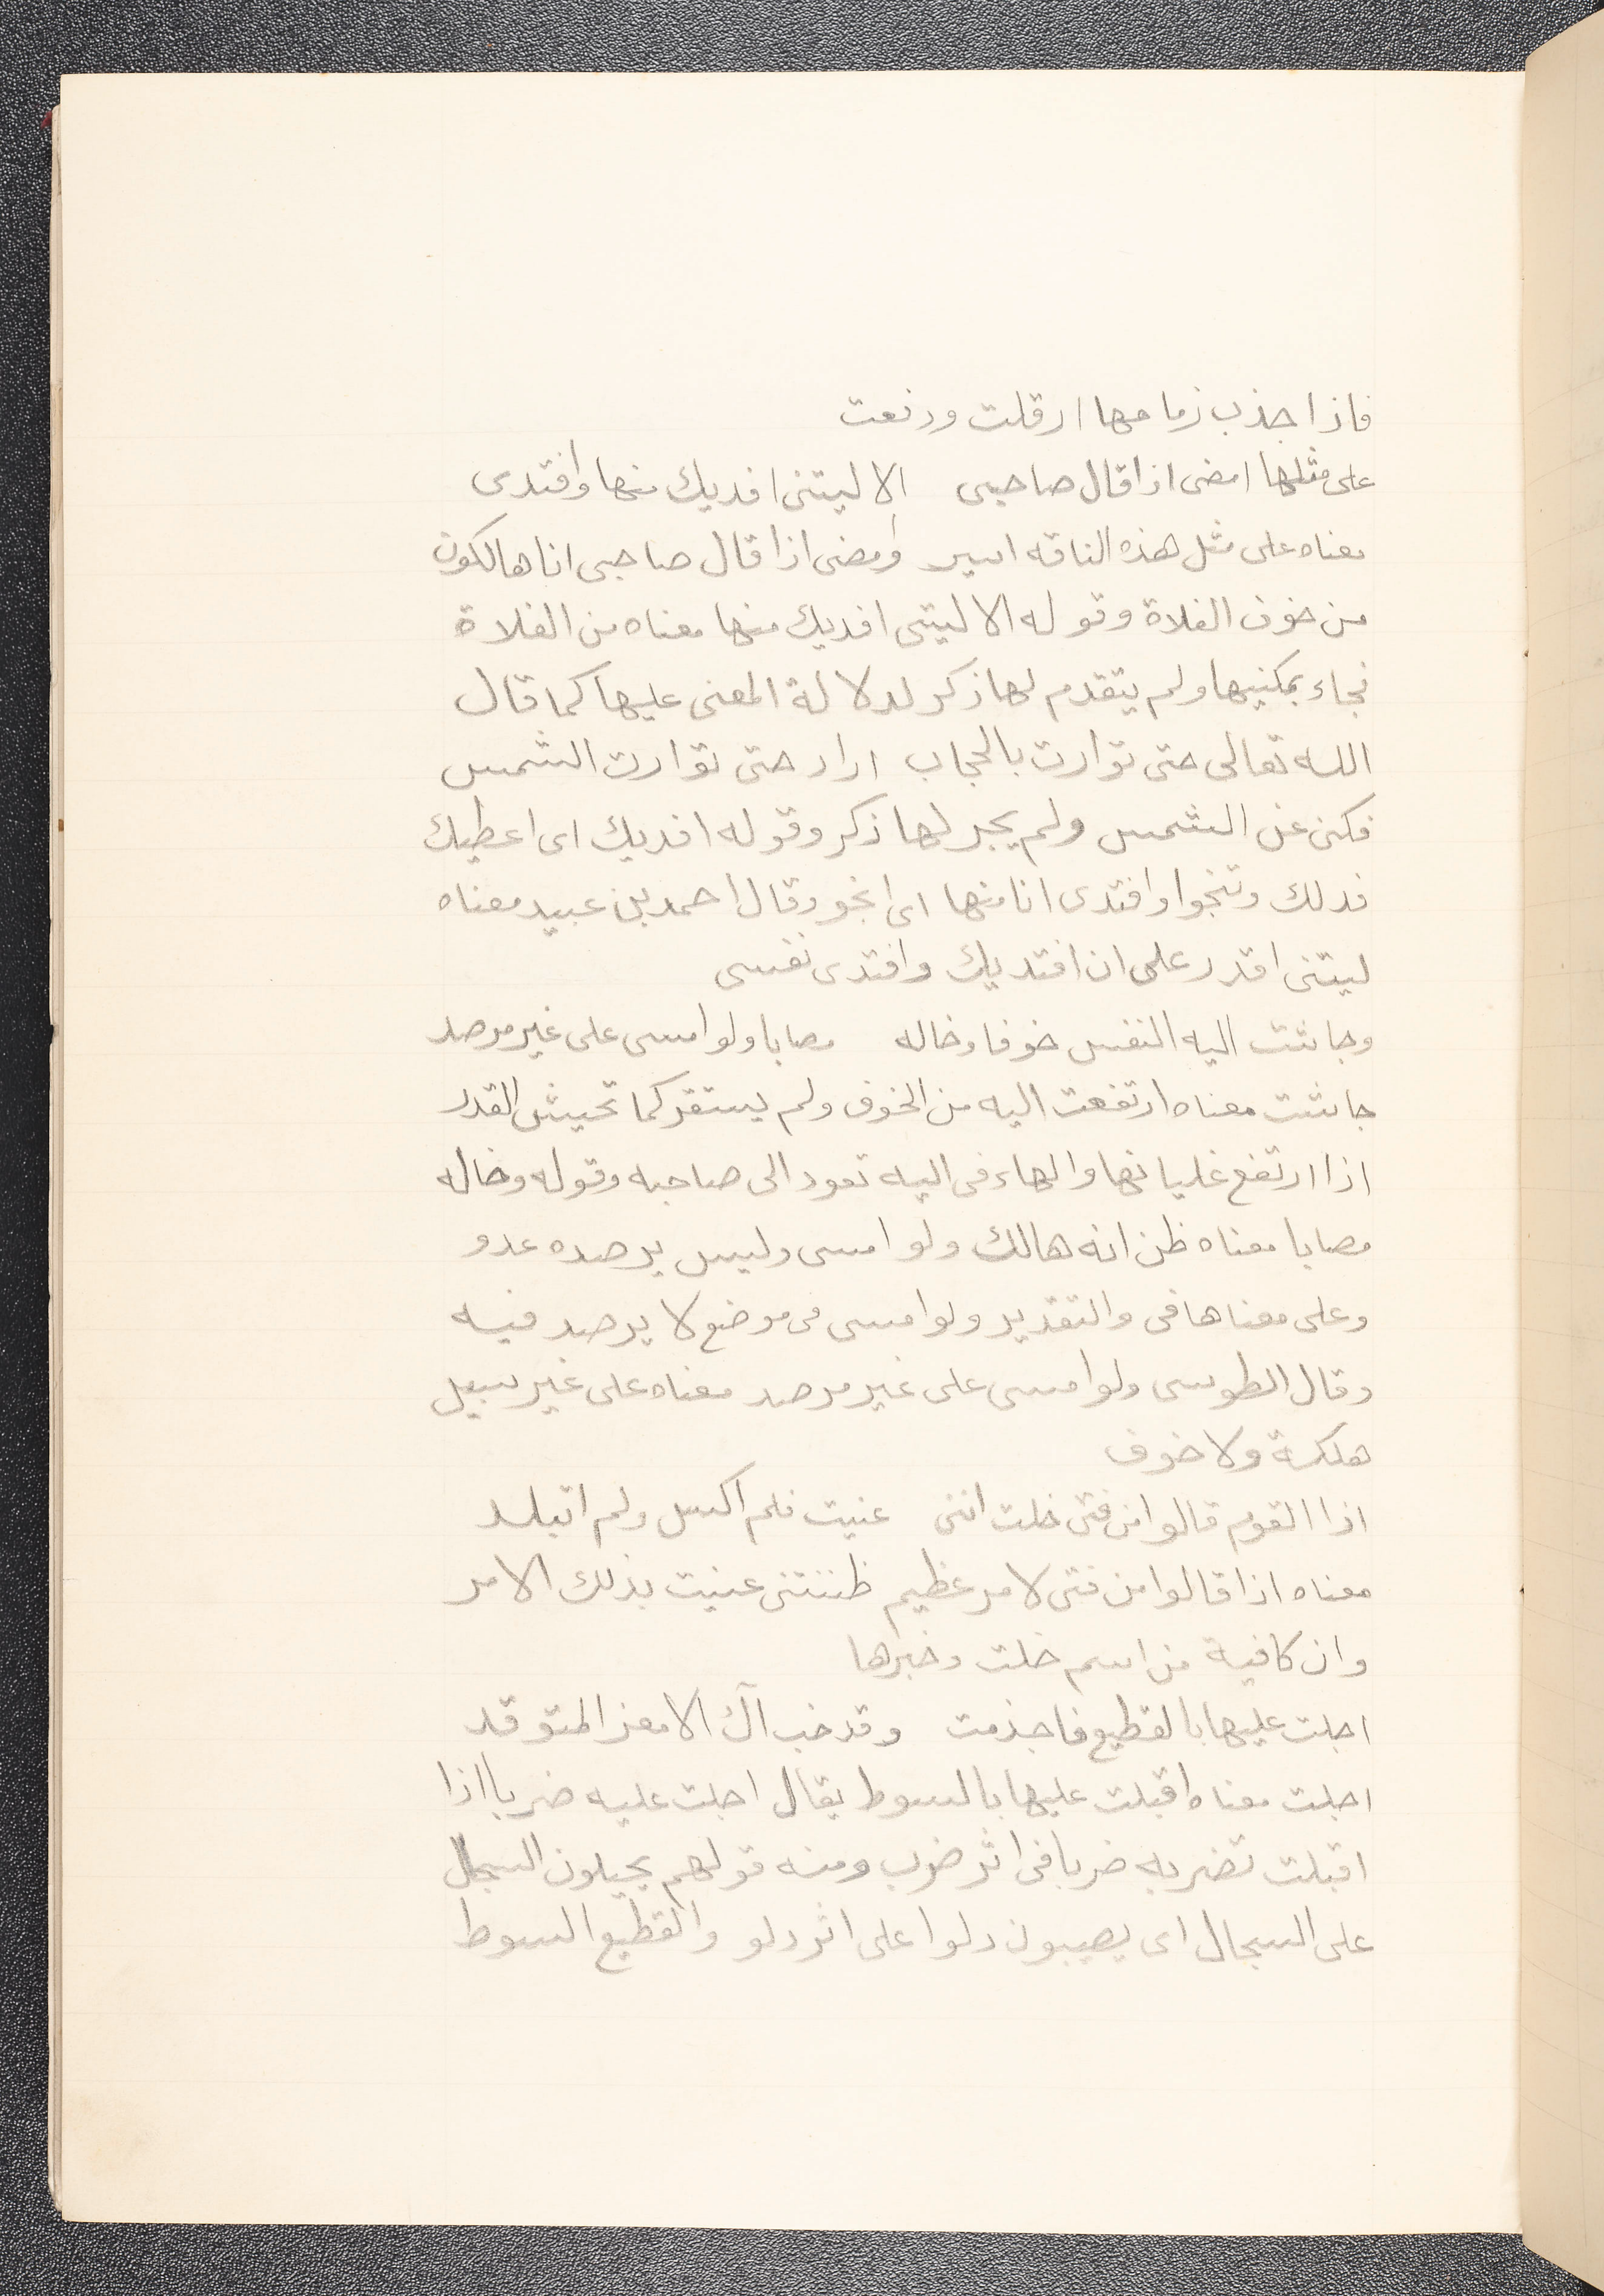 فاذا جذب زمامها ارقلت ورفعت
على مثلها امضى اذا قال صاحبى الا ليتنى افديك منها وافتدى
معناه على مثل هذه الناقه اسير وامضى اذا قال صاحبى انا هالكون
من خوف الفلاة وقوله الا ليتنى افديك منها معناه من الفلاة
فجاء بمكنيها ولم يتقدم لها ذكر لدلالة المعنى عليها كما قال
الله تعالى حتى توارت بالحجاب اراد حتى توارت الشمس
فكنى عن الشمس ولم يجر لها ذكر وقوله افديك اى اعطيك
فدلك وتنجوا وافتدى انا منها اى انجو وقال احمد بن عبيد معناه
ليتنى اقدر على ان افتديك وافتدى نفسى
وجاشت اليه النفس خوفا وخاله مصابا ولو امسى على غير مرصد
جاشت معناه ارتفعت اليه من الخوف ولم يستقر كما تجيش القدر
اذا ارتفع غليانها والهاء فى اليه تعود الى صاحبه وقوله وخاله
مصابا معناه ظن انه هالك ولو امسى وليس يرصده عدو
وعلى معناها فى والتقدير ولو امسى فى موضع لا يرصد فيه
وقال الطوسى ولو امسى على غير مرصد معناه على غير سبيل
هلكة ولا خوف
اذا القوم قالوا من فتى خلت اننى عنيت فلم اكسل ولم اتبلد
معناه اذا قالوا من فتى لامر عظيم ظننتنى عنيت بذلك الامر
وان كافية من اسم خلت وخبرها
احلت عليها بالقطيع فاجذمت وقد خب آل الامعز المتوقد
احلت معناه اقبلت عليها بالسوط يقال احلت عليه ضربا اذا
اقبلت تضربه ضربا فى اثر ضرب ومنه قولهم يحيلون السجال
على السجال اى يصيبون دلوا على اثر دلو والقطيع السوط